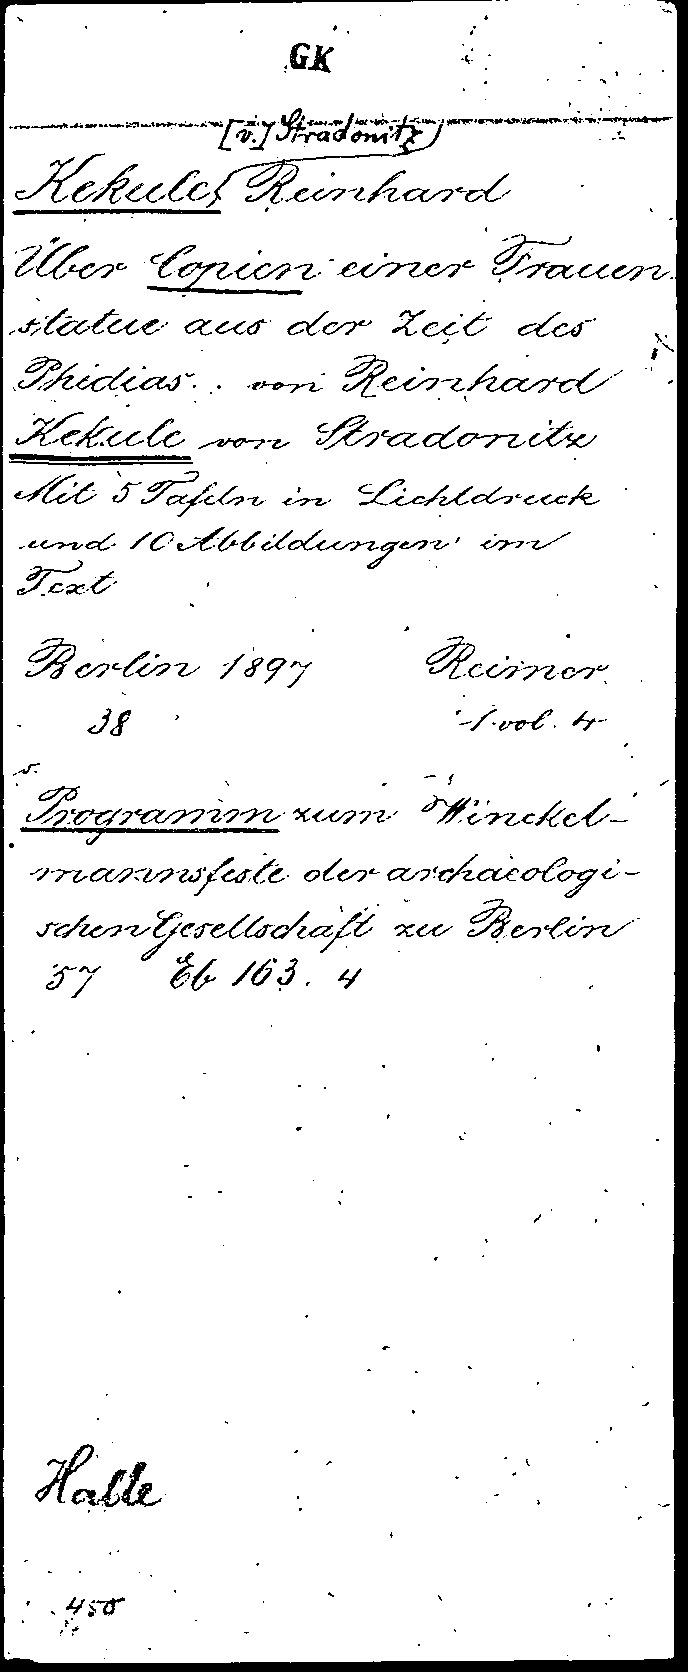 GK
[v.] Stradonitz
Kekule, Reinhard
Über Copien einer Frauen-
statue aus der Zeit des
Phidias. . von Reinhard
Kekule von Stradonitz
Mit 5 Tafeln in Lichtdruck
und 10 Abbildungen im
Text
Berlin 1897 Reimer.
38 1 vol. 4
v.
Programm zum Winckel-
mannsfeste der archaeologi-
schen Gesellschaft zu Berlin
57 Eb 163. 4
Halle
450